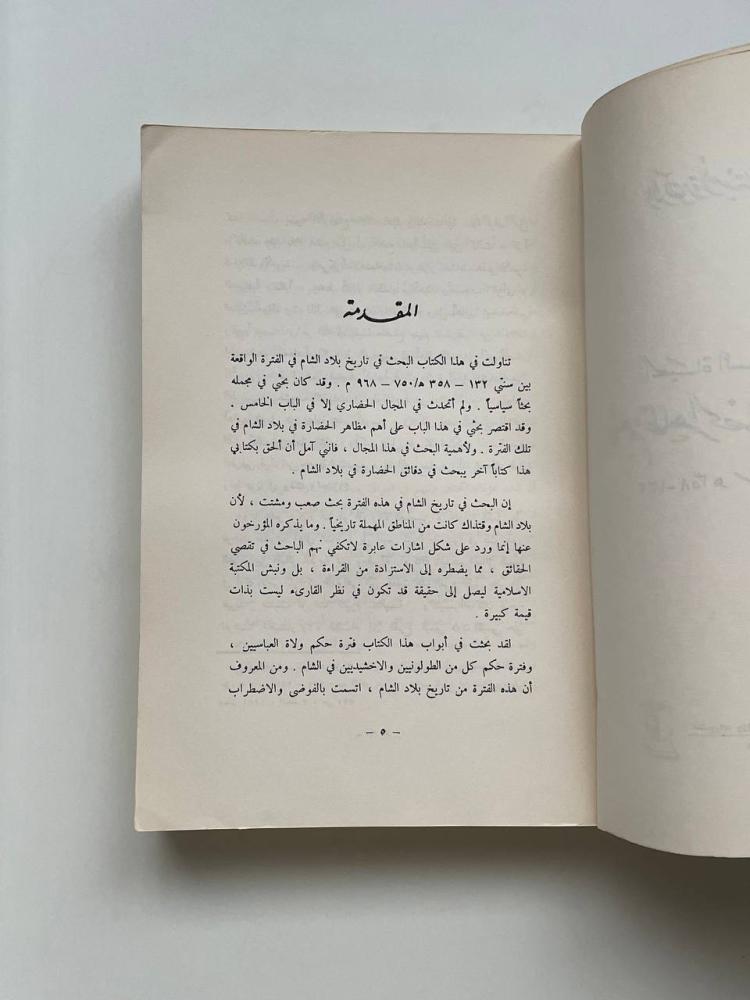 المقدمة
تناولت في هذا الكتاب البحث في تاريخ بلاد الشام في الفترة الواقعة
بين سنتي ١٣٢ – ٣٥٨ ه/٧٥٠ – ٩٦٨ م . وقد كان بحثي في مجمله
بحثاً سياسياً . ولم أتحدث في المجال الحضاري إلا في الباب الخامس .
وقد اقتصر بحثي في هذا الباب على أهم مظاهر الحضارة في بلاد الشام في
تلك الفترة . ولأهمية البحث في هذا المجال ، فانني آمل أن ألحق بكتابي
هذا كتاباً آخر يبحث في دقائق الحضارة في بلاد الشام .
إن البحث في تاريخ الشام في هذه الفترة بحث صعب ومشتت ، لأن
بلاد الشام وقتذاك كانت من المناطق المهملة تاريخياً . وما يذكره المؤرخون
عنها إنما ورد على شكل اشارات عابرة لاتكفي نهم الباحث في تقصي
الحقائق ، مما يضطره إلى الاستزادة من القراءة ، بل ونبش المكتبة
الاسلامية ليصل إلى حقيقة قد تكون في نظر القارىء ليست بذات
قيمة كبيرة .
لقد بحثت في أبواب هذا الكتاب فترة حكم ولاة العباسيين ،
وفترة حكم كل من الطولونيين والاخشيديين في الشام . ومن المعروف
أن هذه الفترة من تاريخ بلاد الشام ، اتسمت بالفوضى والاضطراب
– ٥ –